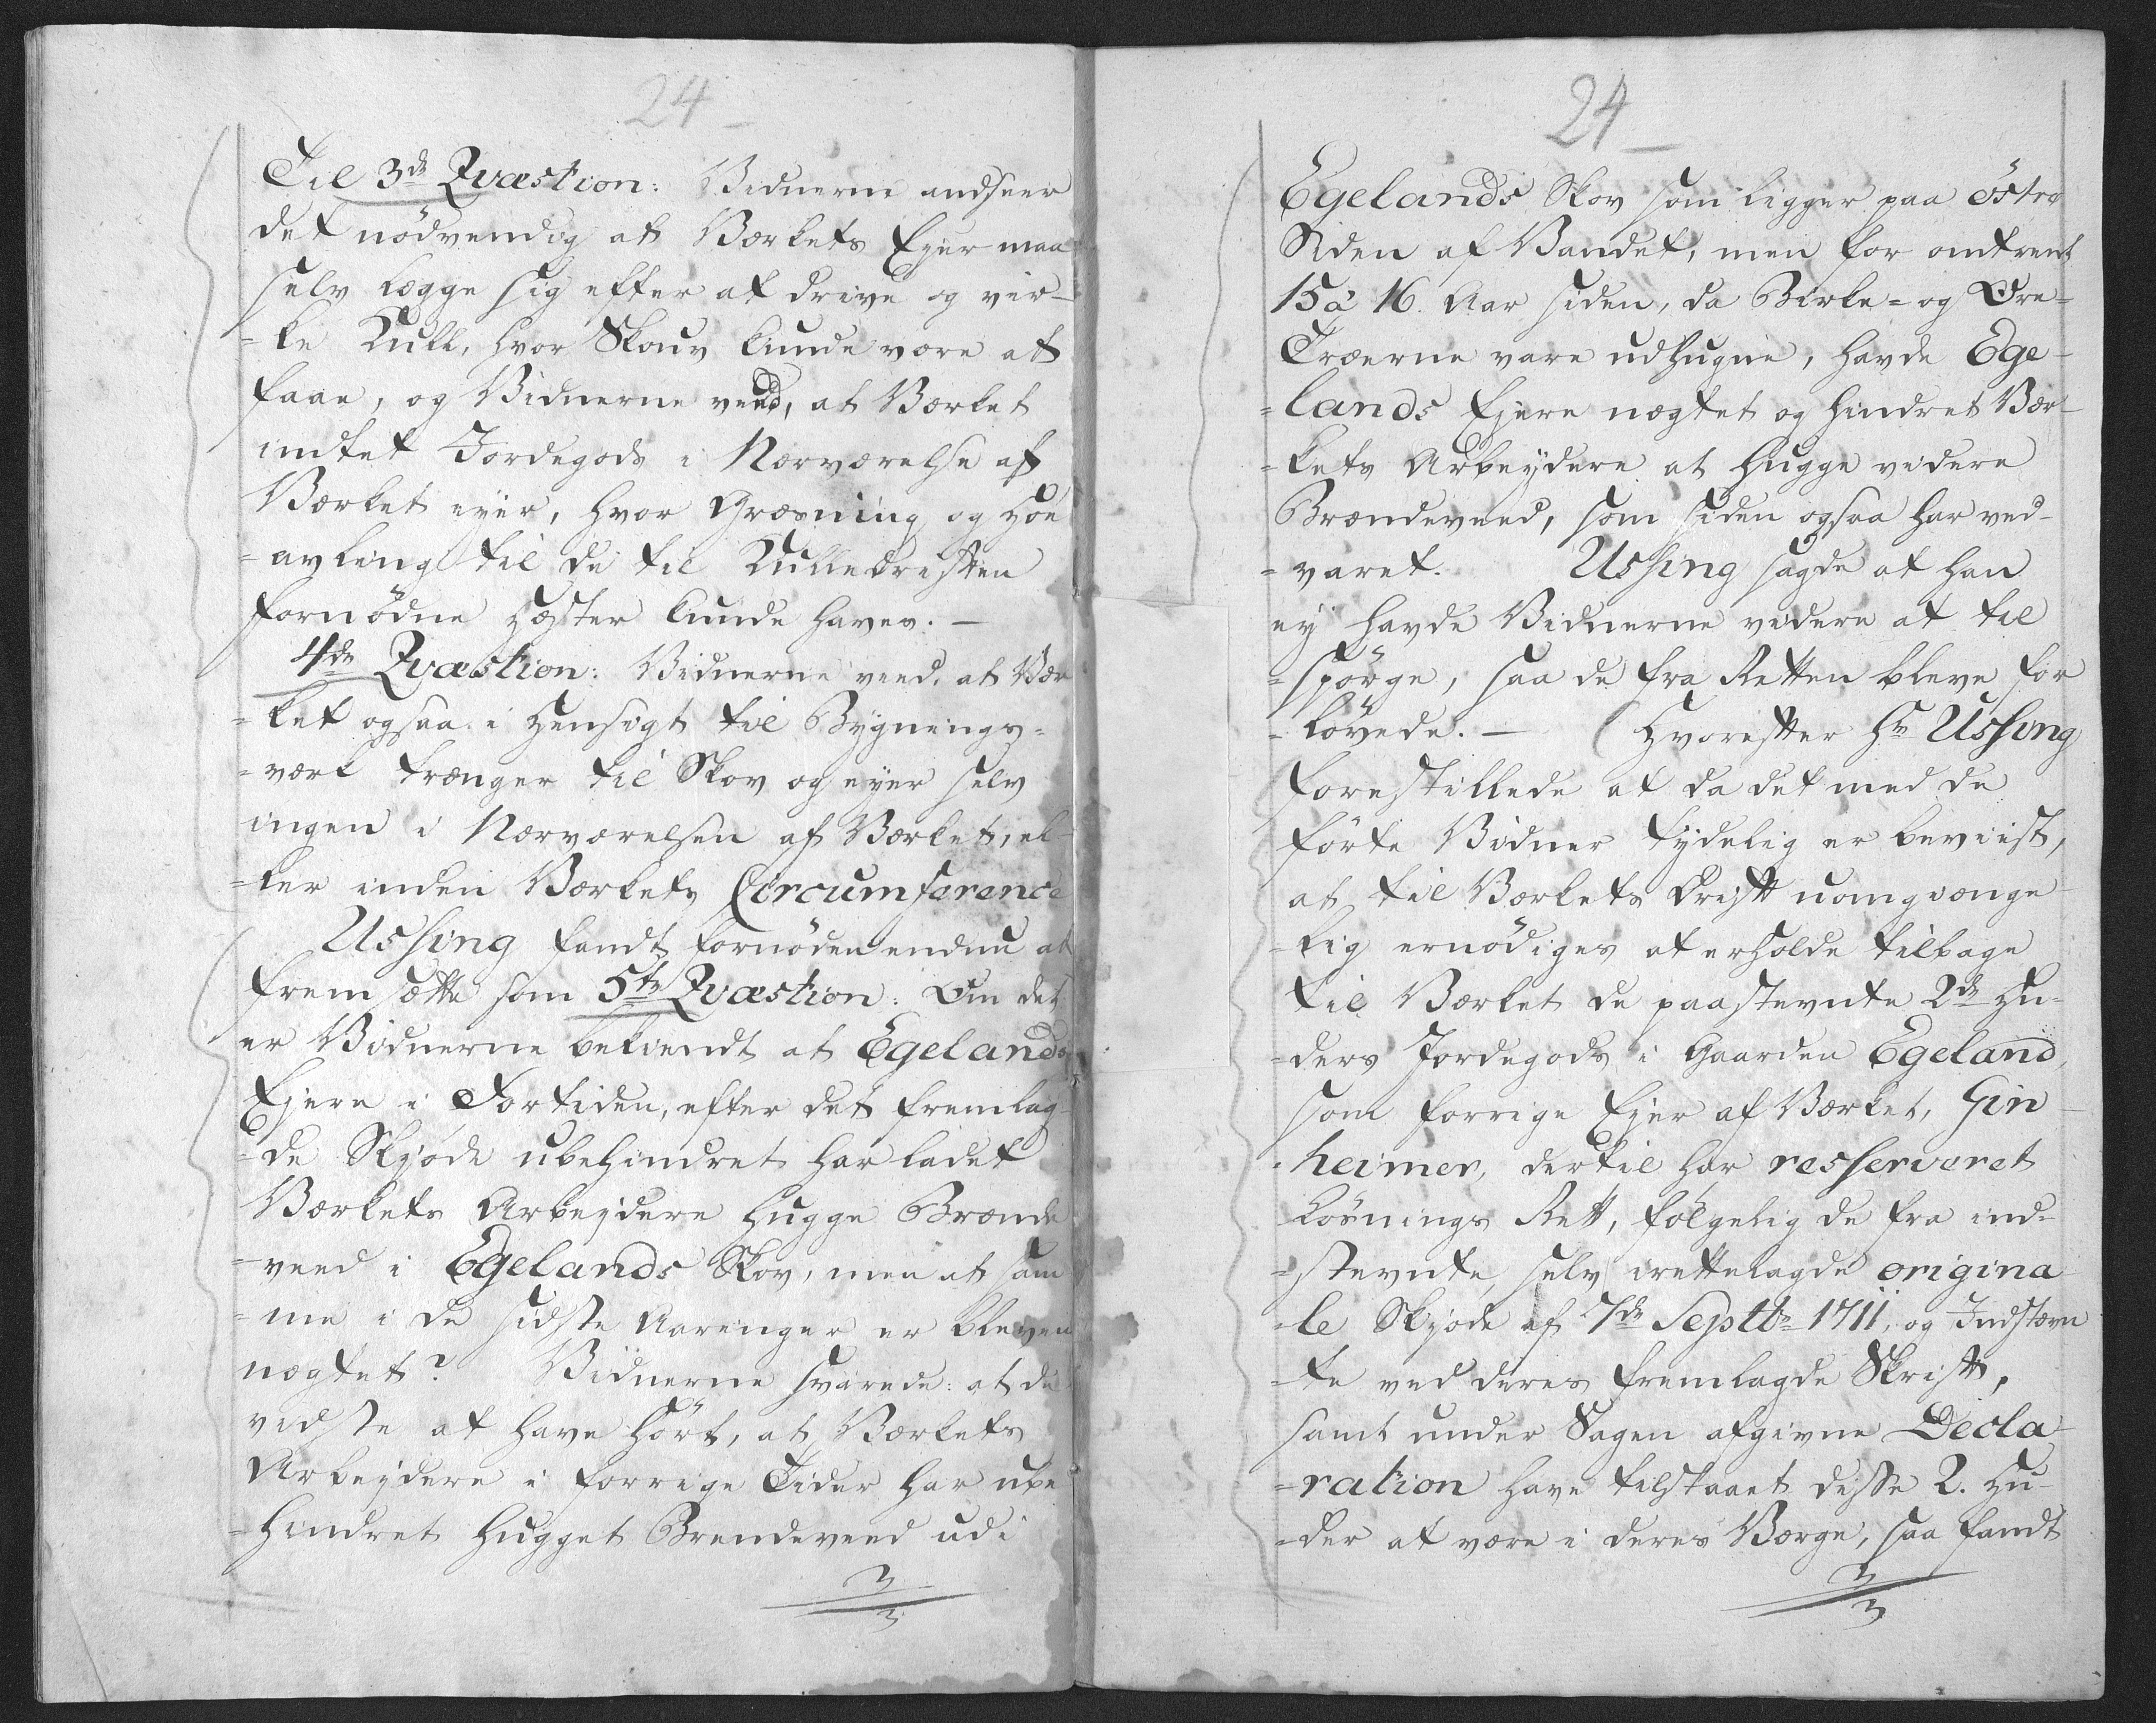 24
Til 3de Qvæstion: Vidnerne andseer
det nödvendig at Værkets Ejer maa
selv lægge sig efter at drive og vir-
-ke Kull, hvor Skouv kunde være at
faae, og Vidnerne veed, at Værket
indtet Jordegods i Nærværelse af
Værket eyer, hvor Græsning og Höe
-avling til de til Kulledriften
fornödne Hæster kunde haves. —
4de Qvæstion: Vidnerne veed, at Vær
-ket ogsaa i Hensigt til Bygnings-
-værk trænger til Skov og eyer selv
ingen i Nærværelsen af Værket, el-
-ler inden Værkets Circumference
Ussing fandt fornöden endnu at
fremsætte som 5te Qvæstion: Om det
er Vidnerne bekiendt at Egelands
Ejere i Fortiden, efter det fremlag-
-de Skjöde ubehindret har ladet
Værkets Arbejdere hugge Brænde
-veed i Egelands Skov, men at sam
-me i de sidste Aarenger er bleven
nægtet? Vidnerne svarede: at de
vidste at have hört, at Værkets
Arbejdere i forrige Tider har ube
-hindret hugget Brendeveed udi
24
Egelands Skov som ligger paa östre
Siden af Vandet, men for omtrent
15 à 16. Aar siden, da Birke- og Ore-
Træerne vare udhugne, havde Ege-
-lands Ejere nægtet og hindret Vær-
-kets Arbeydere at hugge videre
Brændeveed, som siden ogsaa har ved-
-varet. Ussing sagde at han
ey havde Vidnerne videre at til
-spörge, saa de fra Retten bleve for
-lövede. — Hvorefter Hr Ussing
forestillede at da det med de
förte Vidner tydelig er beviist,
at til Værkets Drift uomgiænge
-lig ernödiges at erholde tilbage
til Værket de paastevnte 2de Hu-
-ders Jordegods i Gaarden Egeland,
som forrige Ejer af Værket, Gin-
-heimer, dertil har resserveret
Lösnings Rett, fölgelig de fra ind-
-stevnte selv irettelagde origina
-le Skjöde af 7de Septbr 1711, og Indstævn
-te ved deres fremlagde Skrift,
samt under Sagen afgivne Decla-
-ration have tilstaaet disse 2. Hu-
-der at være i deres Værge, saa fandt